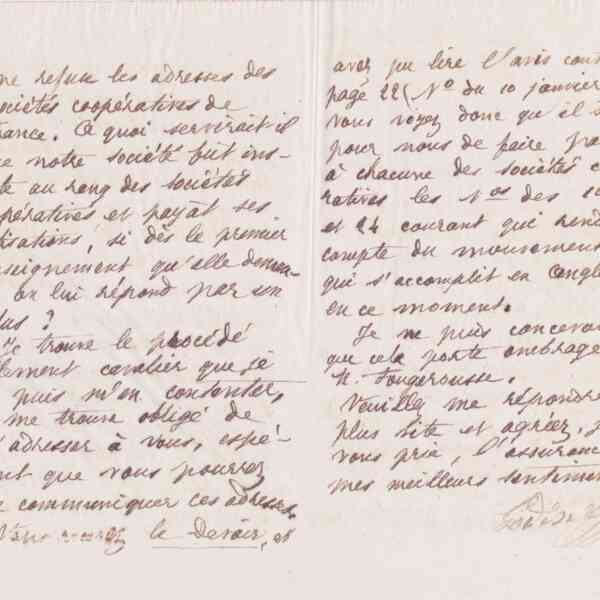 me refuse les adresses des
ociétés coopératives de
rance. À quoi servirait-il
ue notre société fut ins-
te au rang des sociétés
opératives et payât ses
tisations, si dès le premier
nseignement qu'elle deman-
on lui répond par un
fus ?
Je trouve le procédé
llement cavalier que je
puis m'en contenter,
me trouve obligé de
'adresser à vous, espé-
ant que vous pourrez
e communiquer ces adresses.
Vous le Devoir, et
avez pu lire l'avis cont
page 22 (No du 10 janvier
vous voyez donc qu'il s
pour nous de faire pa
à chacune des sociétés c
ratives les Nos des 10
et 24 courant qui rend
compte du mouvement
qui s'accomplit en Angle
en ce moment.
Je ne puis concevoi
que cela porte ombrage
M. Fougerousse.
Veuillez me répondre
plus vite et agréez, j
vous prie, l'assurance
mes meilleurs sentimen